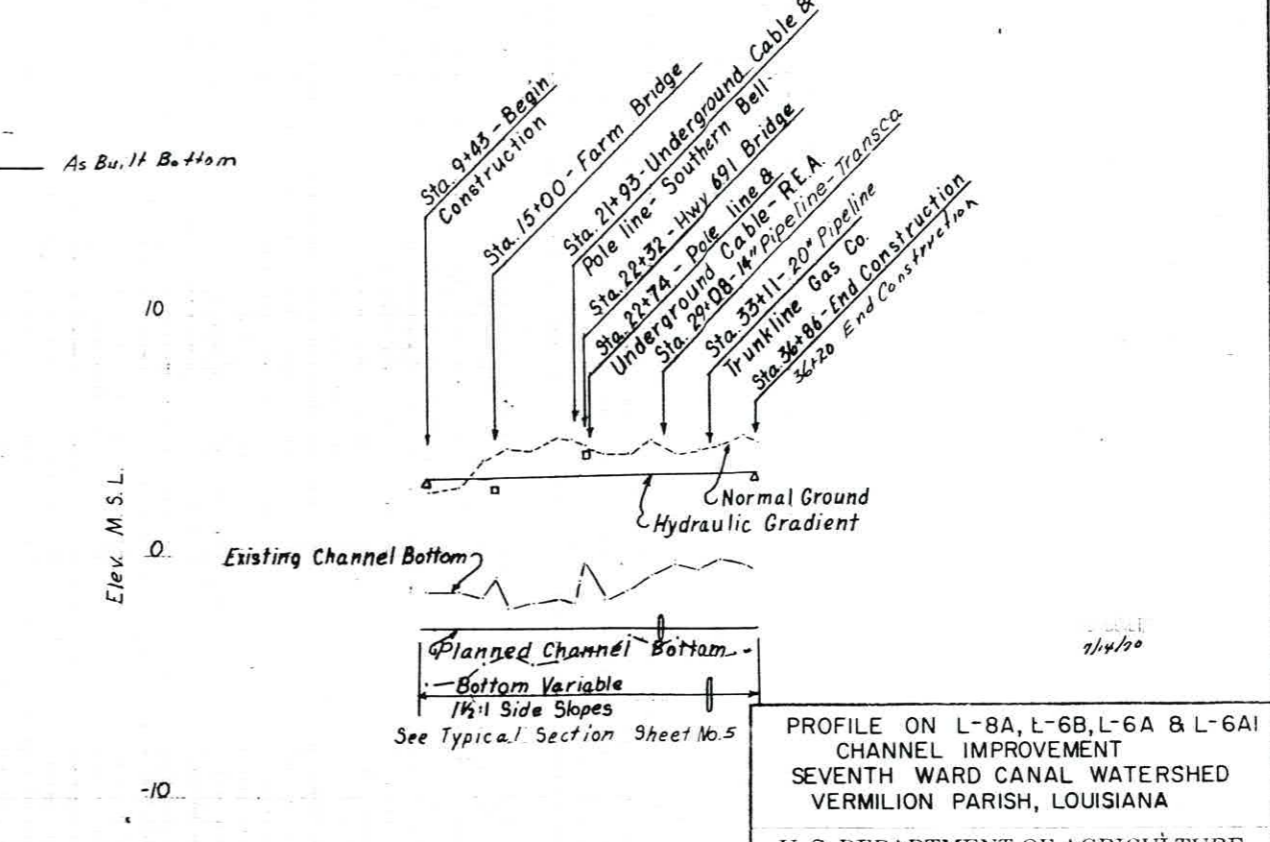 As Built Bottom
Sta. 9+43 - Begin
Construction
Sta. 15+00 - Farm Bridge
Sta. 21+93 - Underground Cable &
Pole line - Southern Bell
Sta. 22+32 - Hwy 691 Bridge
Sta. 22+74 - Pole line &
Underground Cable - R.E.A.
Sta. 29+08 - 14" Pipeline - Transco
Sta. 33+11 - 20" Pipeline
Trunkline Gas Co.
Sta. 36+86 - End Construction
36+20 End Construction
10
Elev. M.S.L.
Normal Ground
Hydraulic Gradient
0
Existing Channel Bottom
Planned Channel Bottom
Bottom Variable
1½:1 Side Slopes
See Typical Section Sheet No. 5
7/14/70
-10
PROFILE ON L-8A, L-6B, L-6A & L-6A1
CHANNEL IMPROVEMENT
SEVENTH WARD CANAL WATERSHED
VERMILION PARISH, LOUISIANA
U. S. DEPARTMENT OF AGRICULTURE